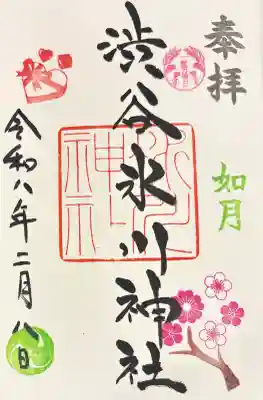 奉拝
如月
渋谷氷川神社
令和八年二月八日